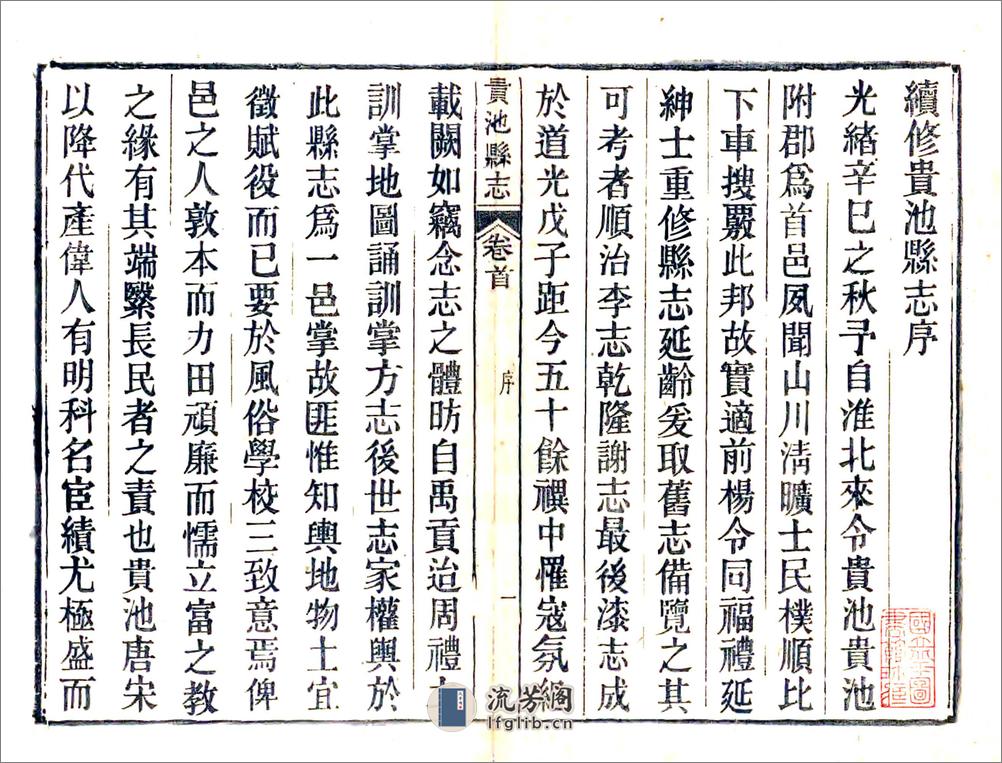 續修貴池縣志序
光緒辛巳之秋予自淮北來令貴池貴池
附郡爲首邑夙聞山川淸曠士民樸順比
下車搜覈此邦故實適前楊令同福禮延
紳士重修縣志延齡爰取舊志備覽之其
可考者順治李志乾隆謝志最後漆志成
於道光戊子距今五十餘禩中罹寇氛
貴池縣志
卷首
序
一
載闕如竊念志之體昉自禹貢迨周禮
訓掌地圖誦訓掌方志後世志家權輿於
此縣志爲一邑掌故匪惟知輿地物土宜
徵賦役而已要於風俗學校三致意焉俾
邑之人敦本而力田頑廉而懦立富之教
之緣有其端繄長民者之責也貴池唐宋
以降代產偉人有明科名宦績尤極盛而
流芳阁
lfglib.cn